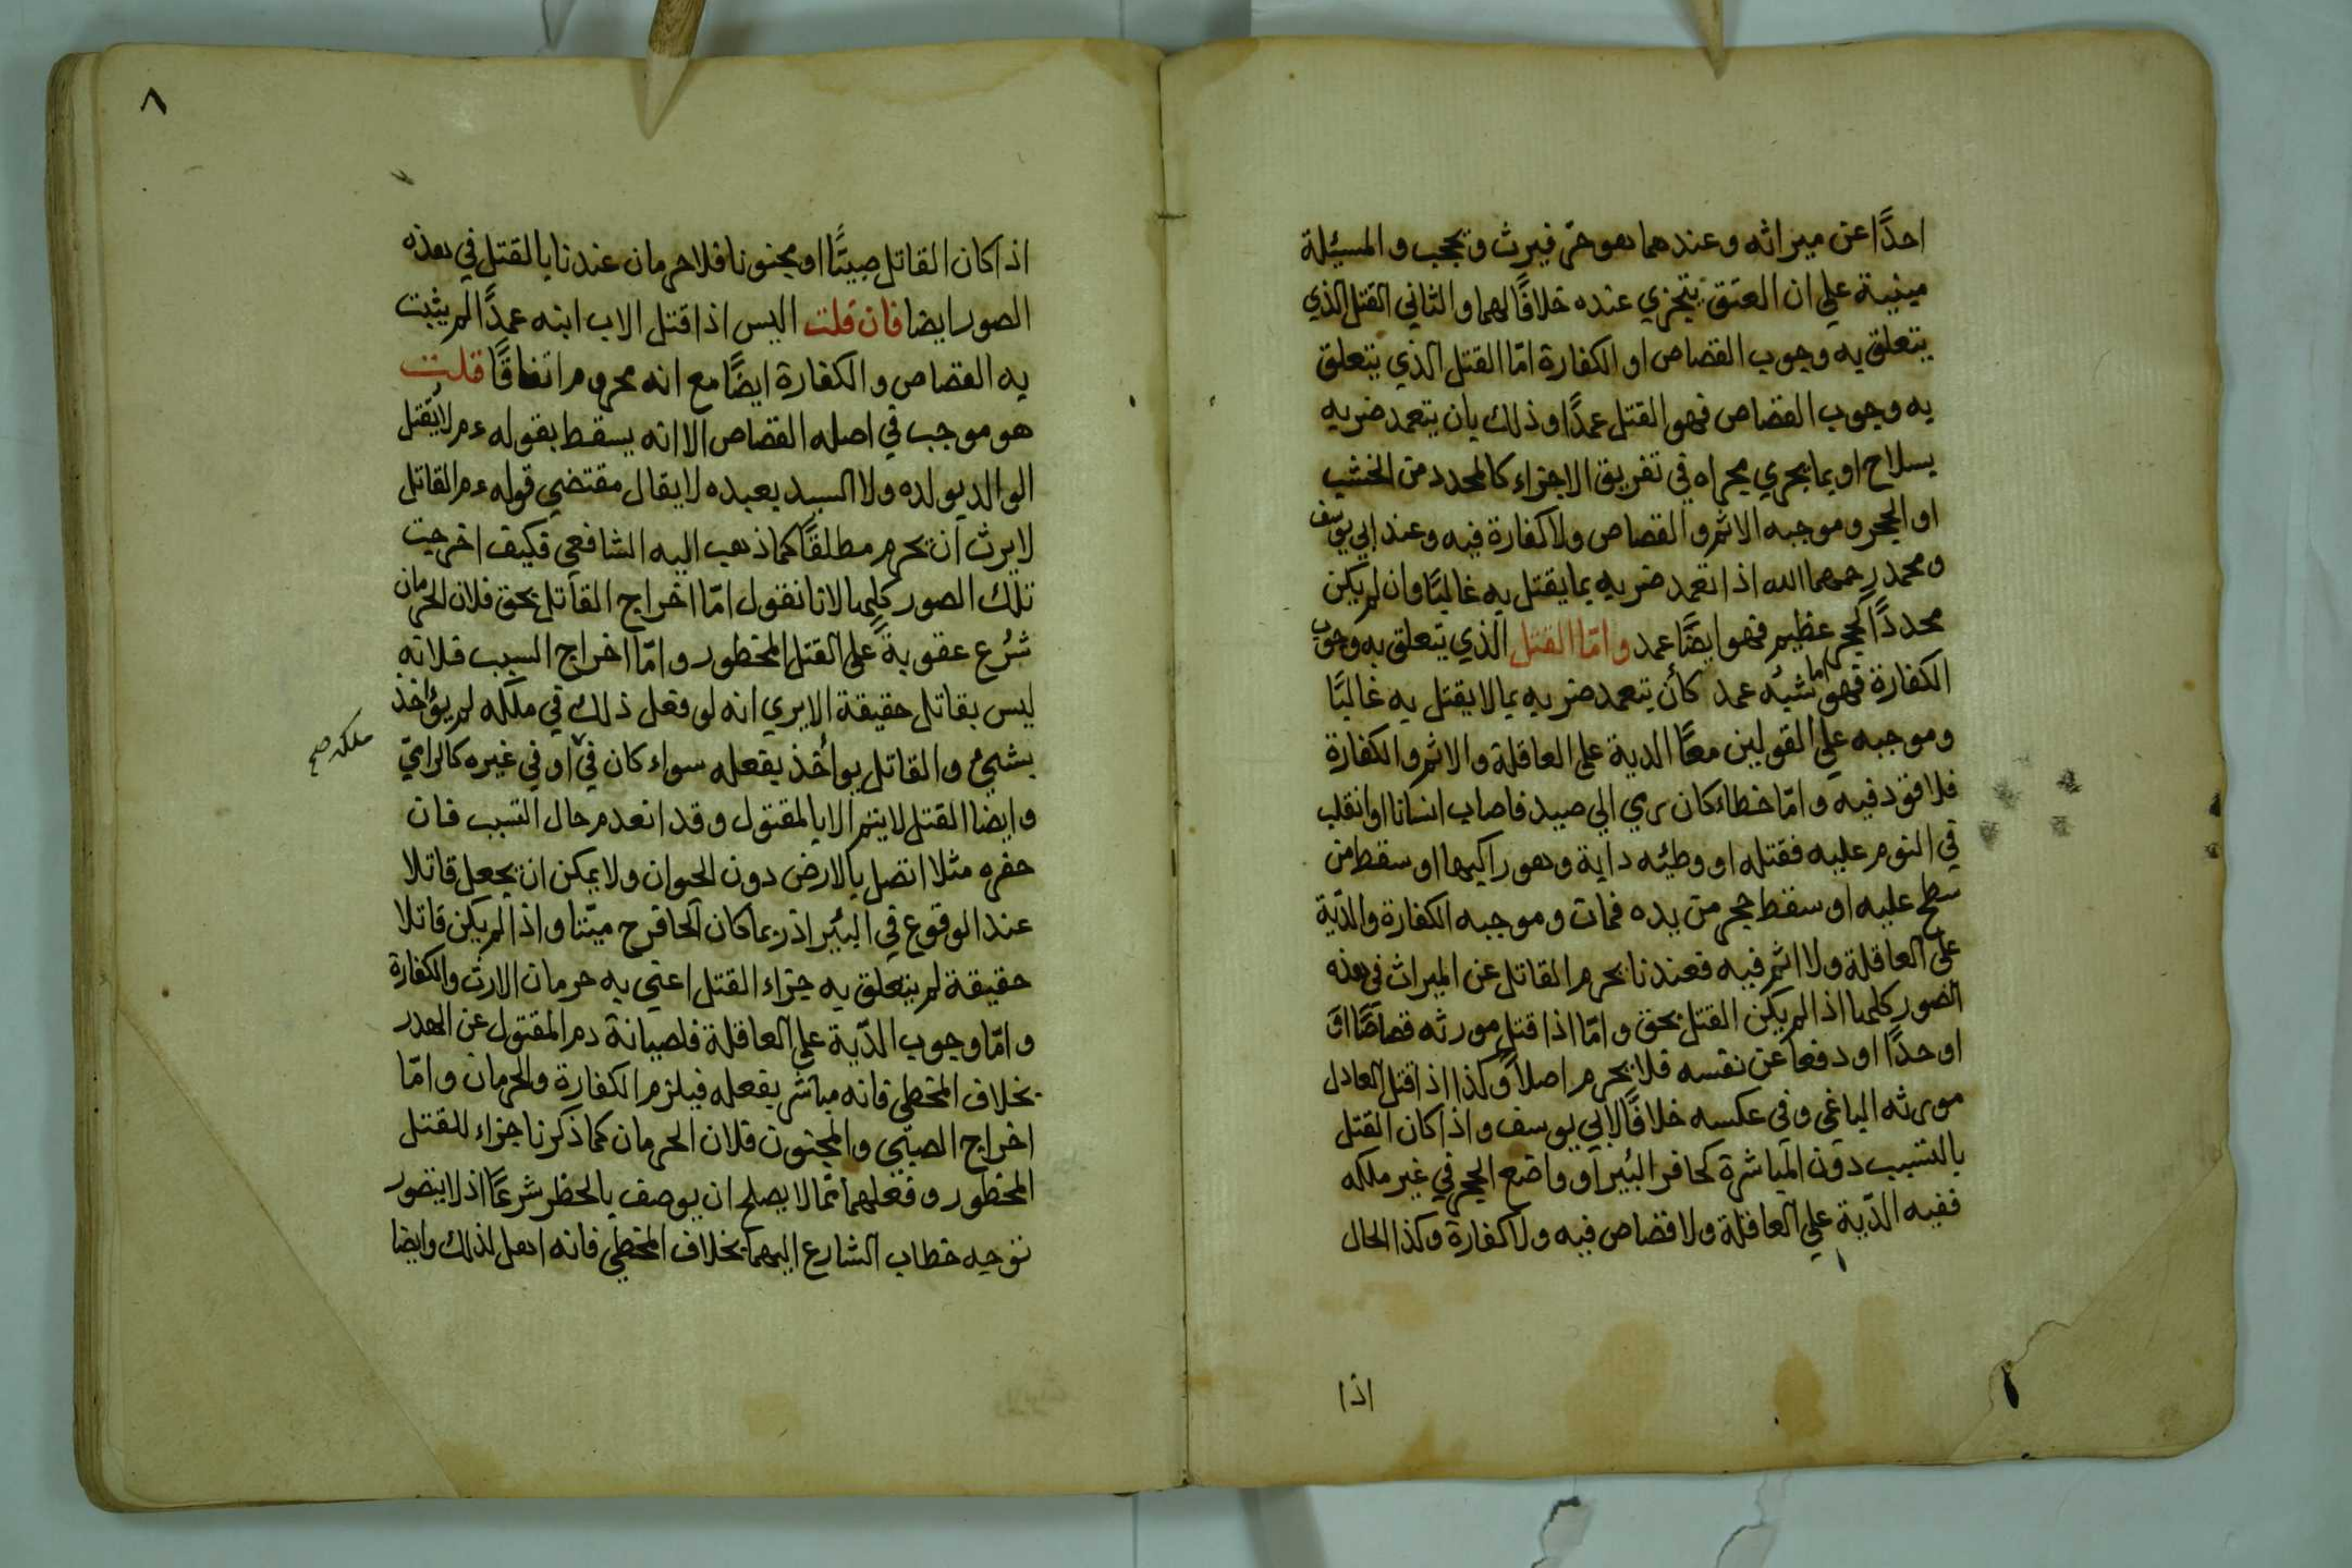 احدًا عن ميراثه وعندهما هو حرّ فيرث ويحجب والمسئلة
مبنية علي ان العتق يتجزي عنده خلافًا لهما والثاني القتل الذي
يتعلق به وجوب القصاص او الكفارة امّا القتل الذي يتعلق
به وجوب القصاص فهو القتل عمدًا وذلك بان يتعمد ضربه
بسلاح او بما يجري مجراه في تفريق الاجزاء كالمحدد من الخشب
او الحجر وموجبه الاثم والقصاص ولا كفارة فيه وعند ابي يوسف
ومحمد رحمهما الله اذا تعمد ضربه بما يقتل به غالبًا وان لم يكن
محددًا كحجر عظيم فهو ايضًا عمد وامّا القتل الذي يتعلق به وجوب
الكفارة فهو اما شبه عمد كأن يتعمد ضربه بما لا يقتل به غالبًا
وموجبه علي القولين معًا الدية على العاقلة والاثم والكفارة
فلا قود فيه وامّا خطاء كان رمي الي صيد فاصاب انسانا او انقلب
في النوم عليه فقتله او وطئه دابة وهو راكبها او سقط من
سطح عليه او سقط حجر من يده فمات وموجبه الكفارة والدّية
على العاقلة ولا اثم فيه فعندنا يحرم القاتل عن الميراث في هذه
الصور كلها اذا لم يكن القتل بحق وامّا اذا قتل مورثه قصاصًا او
او حدًا او دفعا عن نفسه فلا يحرم اصلاً وكذا اذا قتل العادل
مورثه الباغي وفي عكسه خلافًا لابي يوسف واذا كان القتل
بالتسبب دون المباشرة كحافر البئر او واضع الحجر في غير ملكه
ففيه الدّية علي العاقلة ولا قصاص فيه ولا كفارة وكذا الحال
اذا
٨
اذا كان القاتل صبيًّا او مجنونا فلا حرمان عندنا بالقتل في هذه
الصور ايضا فان قلت اليس اذا قتل الاب ابنه عمدًا لم يثبت
به القصاص والكفارة ايضًا مع انه محروم اتفاقًا قلت
هو موجب في اصله القصاص الا انه يسقط بقوله ءم لا يُقتل
الوالد بولده ولا السيد بعبده لا يقال مقتضي قوله ءم القاتل
لا يرث ان يحرم مطلقًا كما ذهب اليه الشافعي فكيف اخرجت
تلك الصور كلها لانا نقول امّا اخراج القاتل بحق فلان الحرمان
شُرع عقوبةً على القتل المحظور وامّا اخراج السبب فلانه
ليس بقاتل حقيقة الا يري انه لو فعل ذلك في ملكه لم يؤاخذ
بشيئ والقاتل يواخذ بفعله سواء كان في او في غيره كالرامي
ملكه صح
وايضا القتل لا يتم الا بالمقتول وقد انعدم حال التسبب فان
حفره مثلا اتصل بالارض دون الحيوان ولا يمكن ان يجعل قاتلا
عند الوقوع في البئر اذ ربما كان الحافر ح ميّتا واذا لم يكن قاتلا
حقيقة لم يتعلق به جزاء القتل اعني به حرمان الارث والكفارة
وامّا وجوب الدّية على العاقلة فلصيانة دم المقتول عن الهدر
بخلاف المخطي فانه مباشر بفعله فيلزم الكفارة والحرمان وامّا
اخراج الصبّي والمجنون فلان الحرمان كما ذكرنا جزاء للقتل
المحظور وفعلهما ممّا لا يصلح ان يوصف بالحظر شرعًا اذ لا يتصور
توجه خطاب الشارع اليهما بخلاف المخطي فانه اهل لذلك وايضا